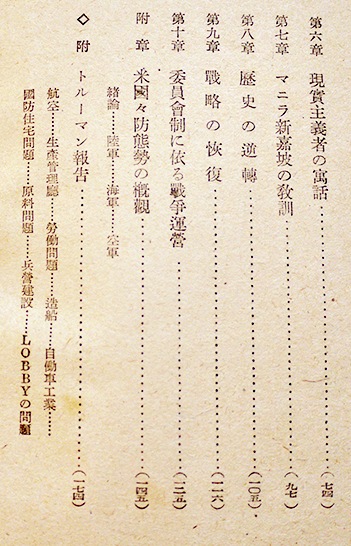 第六章 現實主義者の寓話……(七四)
第七章 マニラ新嘉坡の敎訓……(九七)
第八章 歷史の逆轉……(一〇五)
第九章 戰略の恢復……(一一六)
第十章 委員會制に依る戰爭運營……(一二五)
附章 米國々防態勢の槪觀……(一四五)
緖論……陸軍……海軍……空軍
◇附 トルーマン報告……(一七四)
航空……生產管理廳……勞働問題……造船……自働車工業……
國防住宅問題……原料問題……兵營建設……LOBBYの問題